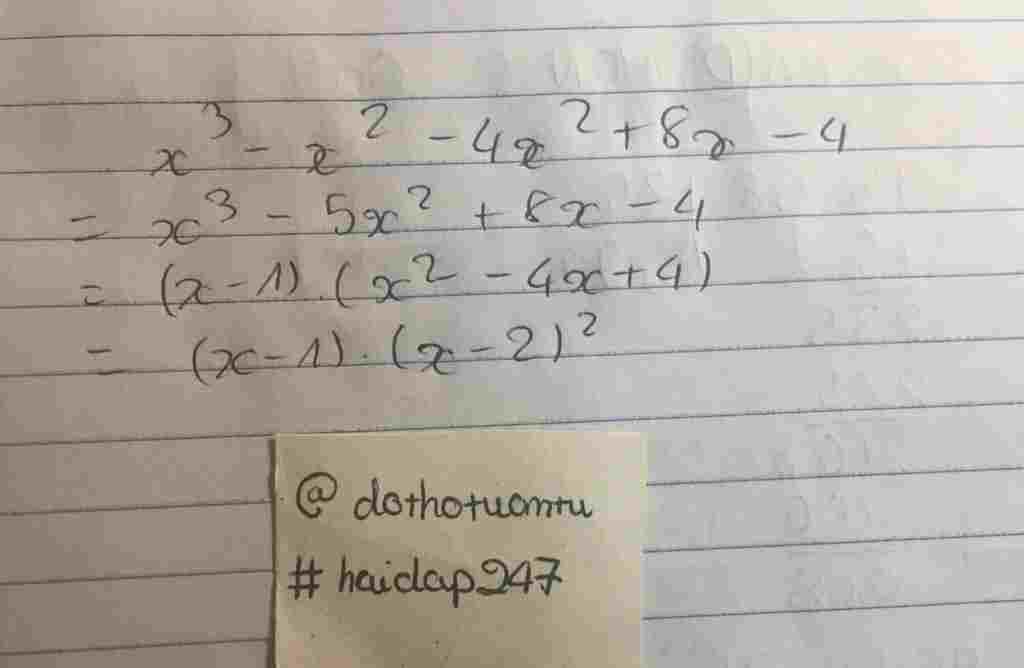 x³ - x² - 4x² + 8x - 4
= x³ - 5x² + 8x - 4
= (x - 1).(x² - 4x + 4)
= (x - 1).(x - 2)²
@ dothotuomtu
# hoidap247